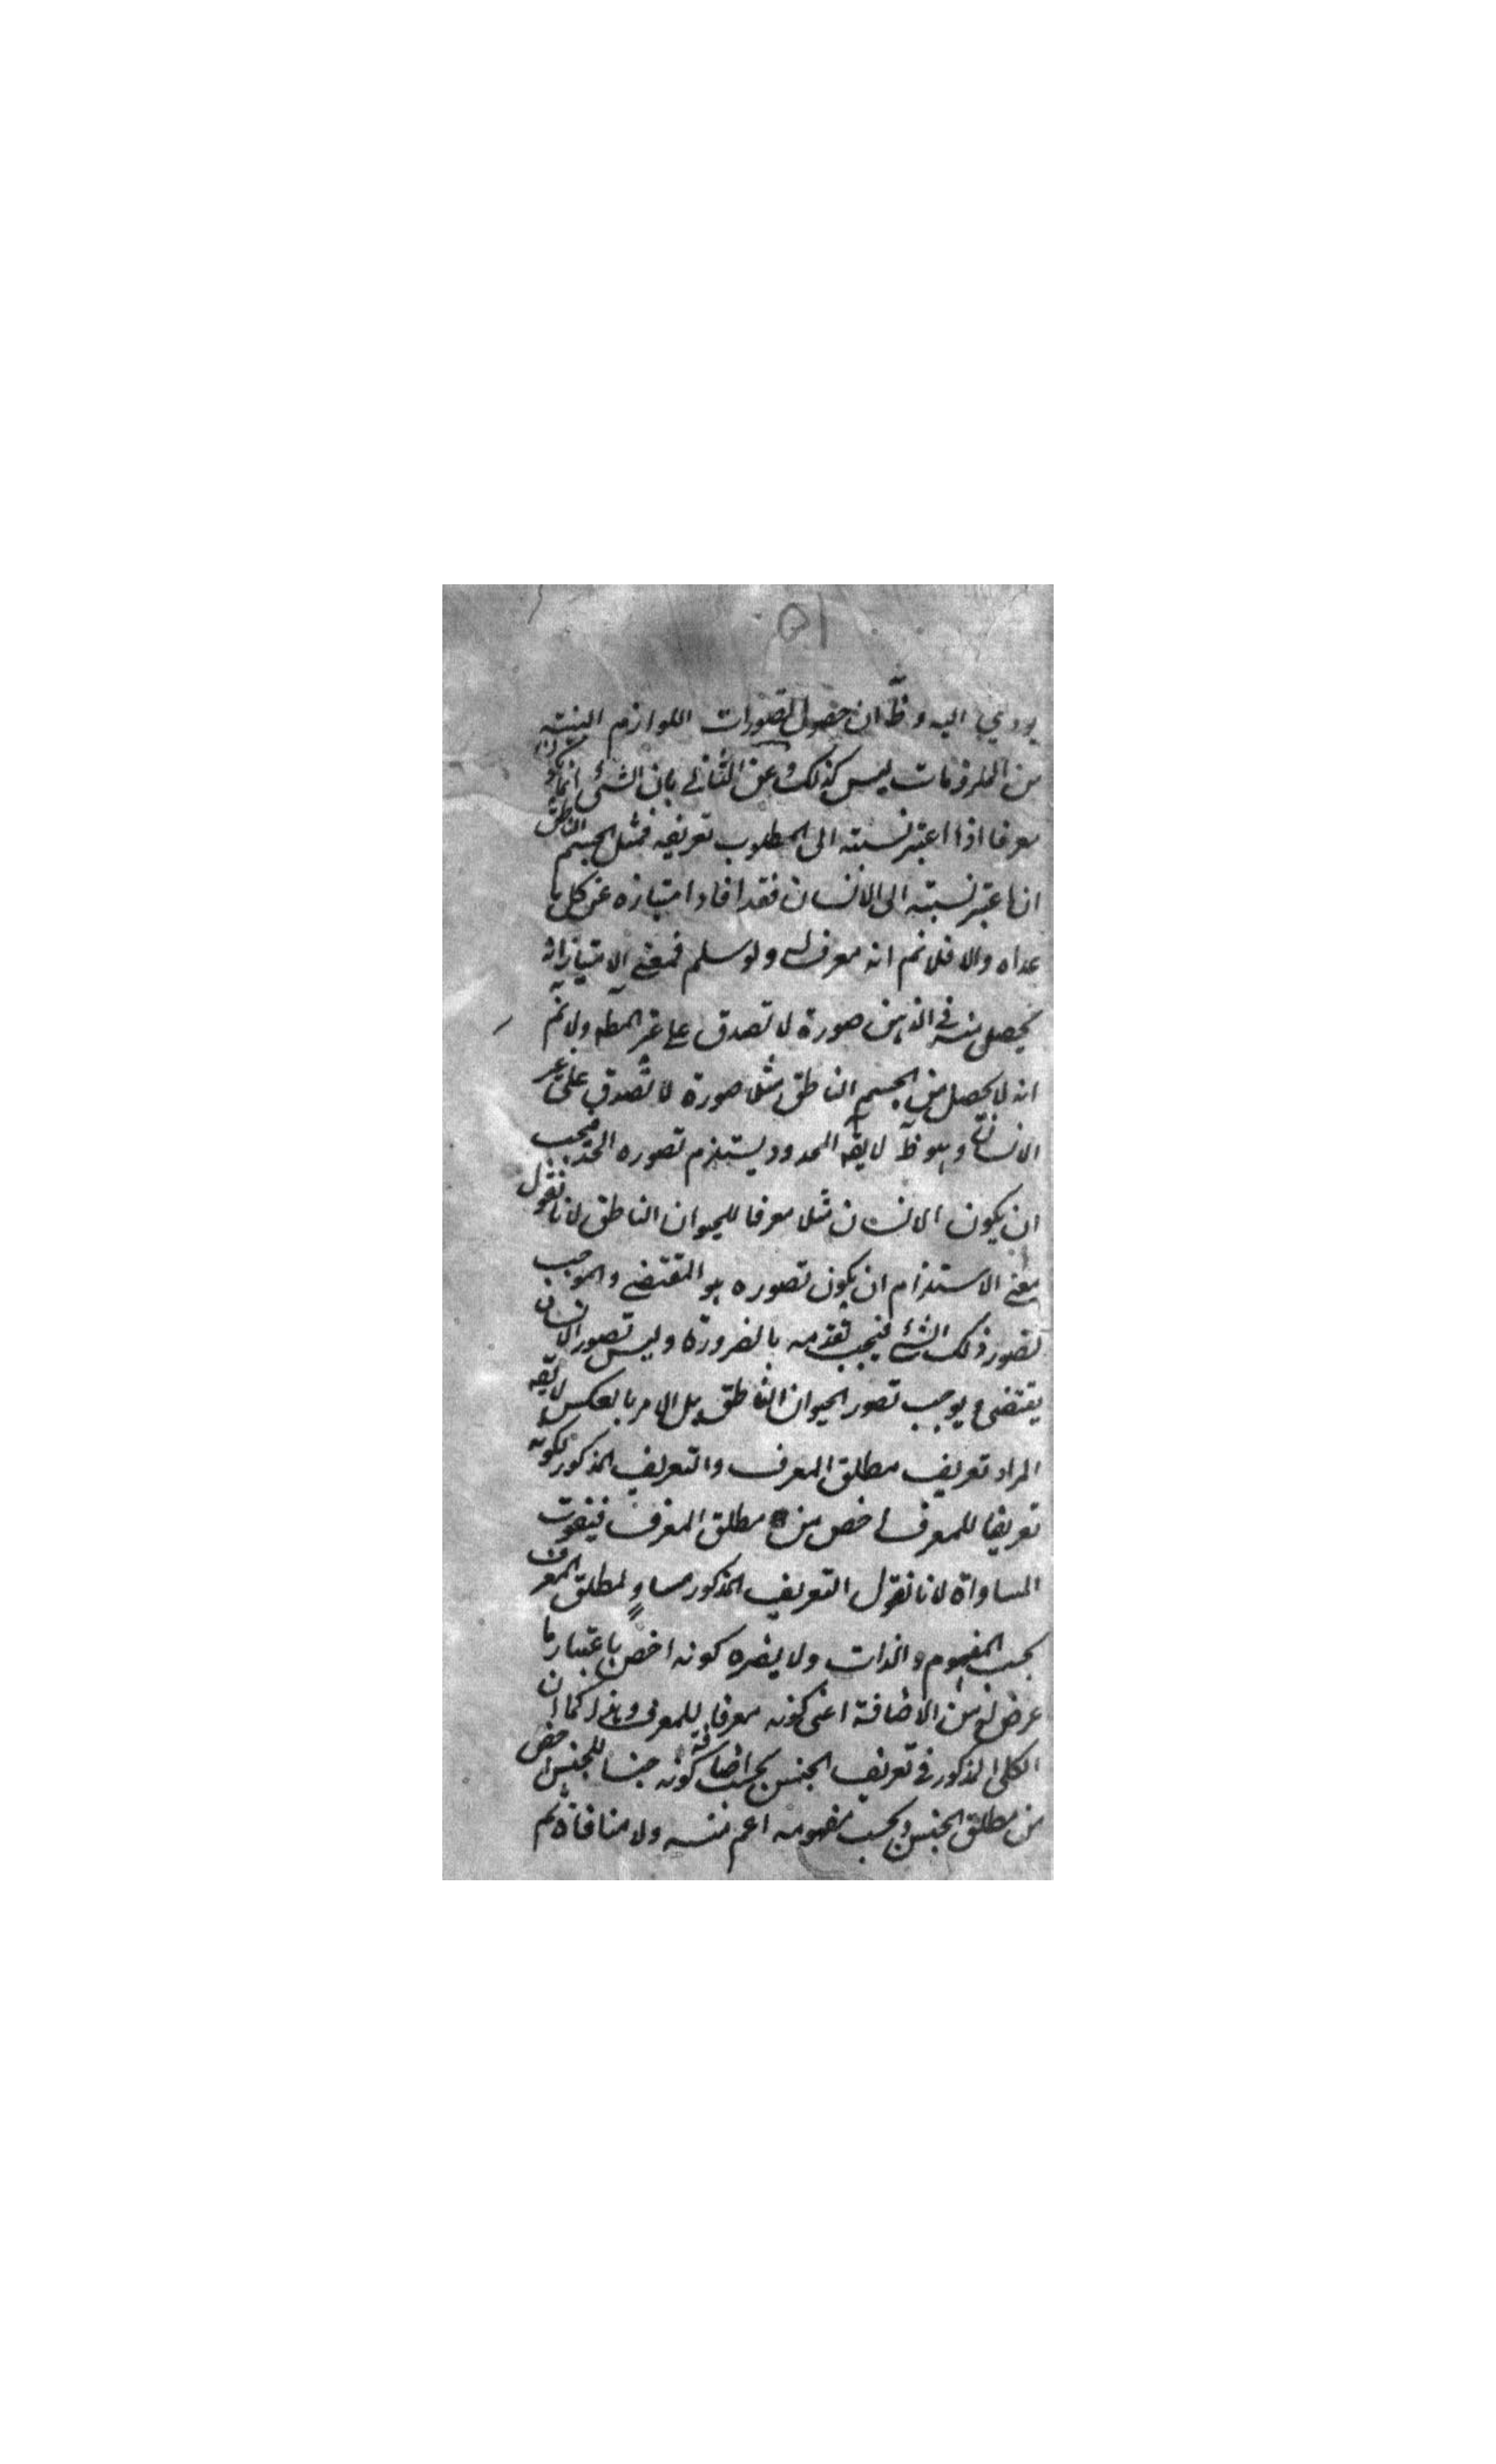 ٥١
يودي اليه وظ ان حصول التصورات اللوازم البينة
من الملزومات ليس كذلك وعن الثاني بان الشئ انما يكون
معرفا اذا اعتبر نسبته الى المطلوب تعريفه فمثل الجسم الناطق
ان اعتبر نسبته الى الانسان فقد افاد امتيازه عن كل ما
عداه والا فلانم انه معرف له ولو سلم فمعنى الامتياز انه
يحصل منه في الذهن صورة لا تصدق على غير المط ولانم
انه لا يحصل من الجسم الناطق مثلا صورة لا تصدق على غير
الانسان وهو ظ لا يقه المحدود يستلزم تصوره الحد فيجب
ان يكون الانسان مثلا معرفا للحيوان الناطق لانا نقول
معنى الاستلزام ان يكون تصوره هو المقتضى والموجب
لتصور ذلك الشئ فيجب تقدمه بالضرورة وليس تصور الانسان
يقتضى ويوجب تصور الحيوان الناطق بل الامر بالعكس لا يقه
المراد تعريف مطلق المعرف والتعريف المذكور لكونه
تعريفا للمعرف اخص من مطلق المعرف فيفوت
المساواة لانا نقول التعريف المذكور مساو لمطلق المعرف
بحسب المفهوم والذات ولا يضره كونه اخص باعتبار ما
عرض له من الاضافة اعنى كونه معرفا للمعرف وهذا كما ان
الكلى المذكور في تعريف الجنس بحسب اضافة كونه جنسا للجنس اخص
من مطلق الجنس وبحسب مفهومه اعم منه ولا منافاة ثم